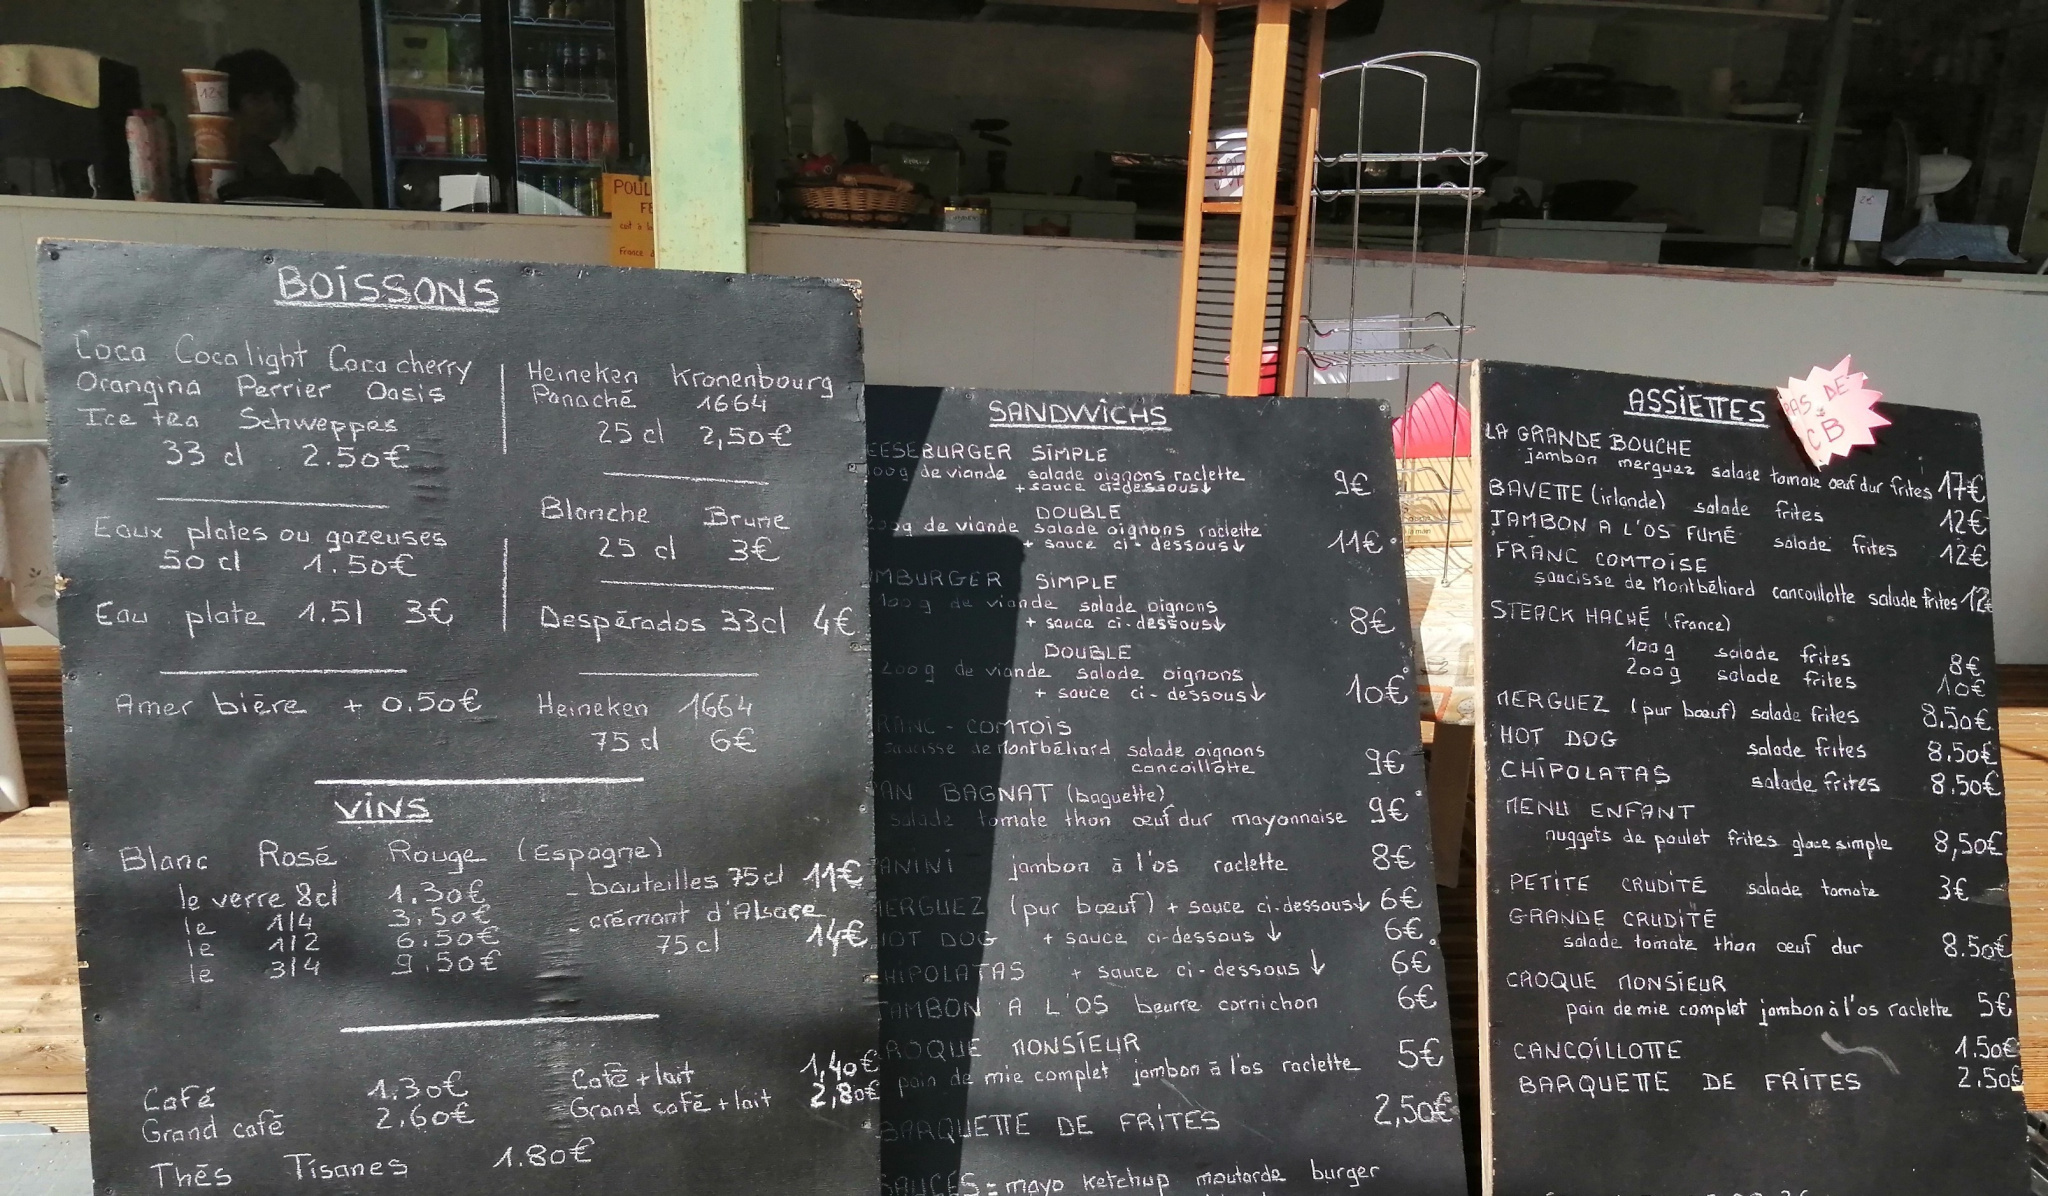 BOISSONS
Coca Coca light Coca cherry
Orangina Perrier Oasis
Ice tea Schweppes
33 cl 2.50€
Eaux plates ou gazeuses
50 cl 1.50€
Eau plate 1.5l 3€
Amer bière + 0.50€
Heineken Kronenbourg
Panaché 1664
25 cl 2,50€
Blanche Brune
25 cl 3€
Despérados 33cl 4€
Heineken 1664
75 cl 6€
VINS
Blanc Rosé Rouge (Espagne)
le verre 8cl 1.30€
le 1/4 3.50€
le 1/2 6.50€
le 3/4 9.50€
- bouteilles 75cl 11€
- crémant d'Alsace
75cl 14€
Café 1.30€
Grand café 2.60€
Café + lait 1,40€
Grand café + lait 2,80€
Thés Tisanes 1.80€
SANDWICHS
EESEBURGER SIMPLE
100g de viande salade oignons raclette
+ sauce ci-dessous↓ 9€
DOUBLE
200g de viande salade oignons raclette
+ sauce ci-dessous↓ 11€
MBURGER SIMPLE
100g de viande salade oignons
+ sauce ci-dessous↓ 8€
DOUBLE
200g de viande salade oignons
+ sauce ci-dessous↓ 10€
RANC-COMTOIS
saucisse de Montbéliard salade oignons
cancoillotte 9€
PAN BAGNAT (baguette)
salade tomate thon œuf dur mayonnaise 9€
ANINI jambon à l'os raclette 8€
MERGUEZ (pur bœuf) + sauce ci-dessous↓ 6€
HOT DOG + sauce ci-dessous↓ 6€
HIPOLATAS + sauce ci-dessous↓ 6€
JAMBON A L'OS beurre cornichon 6€
ROQUE MONSIEUR
pain de mie complet jambon à l'os raclette 5€
BARQUETTE DE FRITES 2,50€
SAUCES = mayo ketchup moutarde burger
ASSIETTES
PAS DE
CB
LA GRANDE BOUCHE
jambon merguez salade tomate œuf dur frites 17€
BAVETTE (irlande) salade frites 12€
JAMBON A L'OS FUMÉ salade frites 12€
FRANC COMTOISE
saucisse de Montbéliard cancoillotte salade frites 12€
STEACK HACHÉ (france)
100g salade frites 8€
200g salade frites 10€
MERGUEZ (pur bœuf) salade frites 8.50€
HOT DOG salade frites 8.50€
CHIPOLATAS salade frites 8.50€
MENU ENFANT
nuggets de poulet frites glace simple 8,50€
PETITE CRUDITÉ salade tomate 3€
GRANDE CRUDITÉ
salade tomate thon œuf dur 8.50€
CROQUE MONSIEUR
pain de mie complet jambon à l'os raclette 5€
CANCOILLOTTE 1.50€
BARQUETTE DE FRITES 2.50€